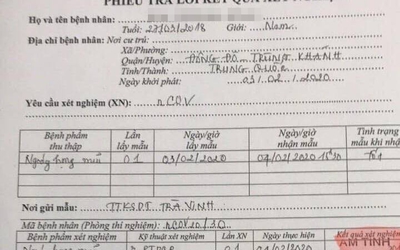 PHIẾU TRẢ LỜI KẾT QUẢ XÉT NGHIỆM
Họ và tên bệnh nhân:
Tuổi: 27/03/2018 Giới: Nam
Địa chỉ bệnh nhân: Nơi cư trú:
Xã/Phường:
Quận/Huyện: ĐÔNG ĐÔ - TRÙNG KHÁNH
Tỉnh/Thành: TRUNG QUỐC
Ngày khởi phát: 01/02/2020
Yêu cầu xét nghiệm (XN): nCOV
Bệnh phẩm thu thập Lần lấy mẫu Ngày/giờ lấy mẫu Ngày/giờ nhận mẫu Tình trạng mẫu khi nhận
Ngoáy họng mũi 01 03/02/2020 04/02/2020 Tốt
Nơi gửi mẫu: TTKSDT. TRÀ VINH
Mã bệnh nhân (Phòng thí nghiệm): nCOV20/30
Bệnh phẩm xét nghiệm Kỹ thuật xét nghiệm Lần XN Ngày thực hiện Kết quả xét nghiệm
01 04/02/2020 ÂM TÍNH